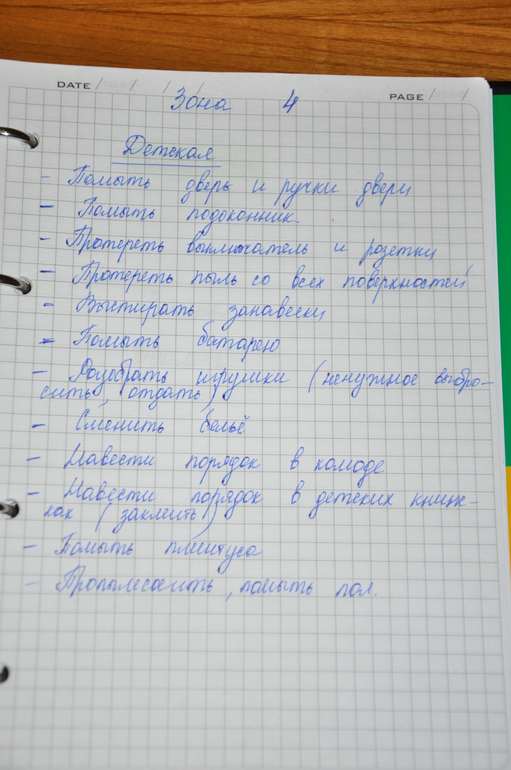 DATE / / / PAGE / /
Зона 4
Детская
- Помыть дверь и ручки двери
- Помыть подоконник.
- Протереть выключатель и розетки
- Протереть пыль со всех поверхностей
- Выстирать занавески
- Помыть батарею
- Разобрать игрушки (ненужное выбро-
сить, отдать)
- Сменить бельё
- Навести порядок в комоде
- Навести порядок в детских книж-
ках (заклеить)
- Помыть плинтуса
- Пропылесосить, помыть пол.